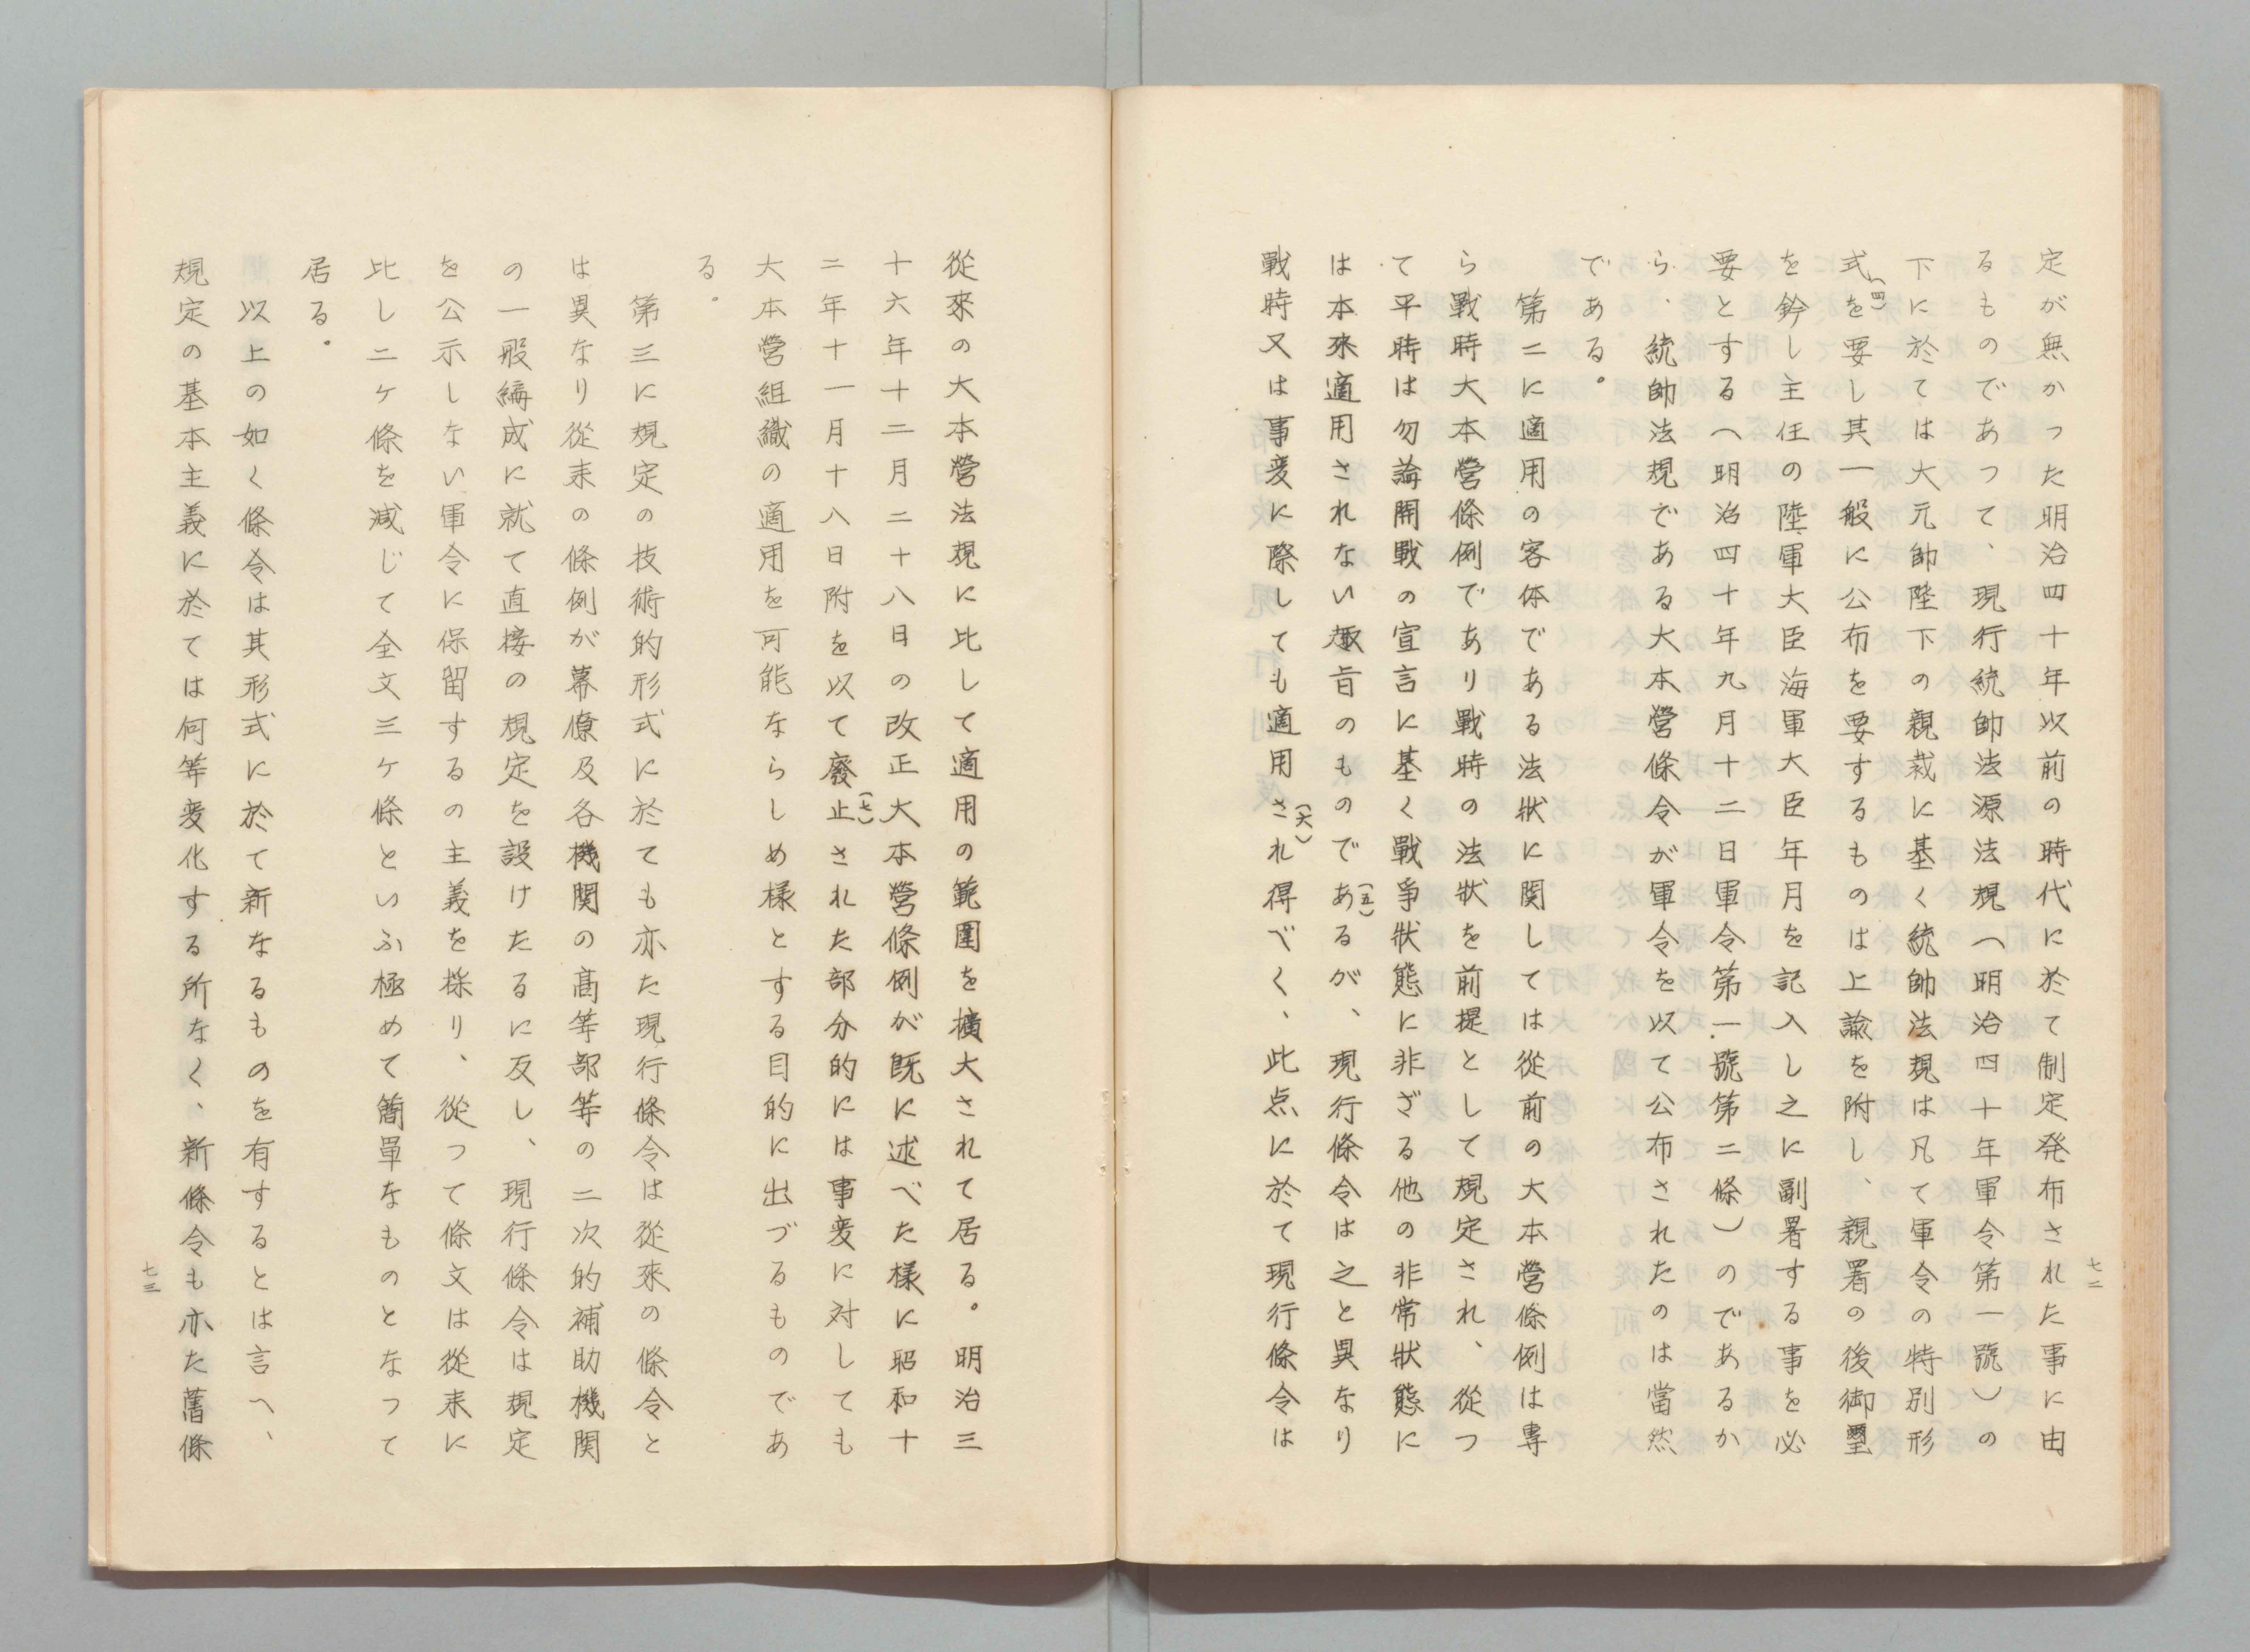 定が無かった明治四十年以前の時代に於て制定発布された事に由
るものであって、現行統帥法源法規（明治四十年軍令第一號）の
下に於ては大元帥陛下の親裁に基く統帥法規は凡て軍令の特別形
式（四）を要し其一般に公布を要するものは上諭を附し、親署の後御璽
を鈐し主任の陸軍大臣海軍大臣年月を記入し之に副署する事を必
要とする（明治四十年九月十二日軍令第一號第二條）のであるか
ら、統帥法規である大本營條令が軍令を以て公布されたのは當然
である。
第二に適用の客体である法狀に関しては從前の大本營條例は専
ら戰時大本營條例であり戰時の法狀を前提として規定され、從つ
て平時は勿論開戰の宣言に基く戰爭狀態に非ざる他の非常狀態に
は本來適用されない趣旨のものである（五）が、現行條令は之と異なり
戰時又は事変に際しても適用され（六）得べく、此点に於て現行條令は
七二
從來の大本營法規に比して適用の範圍を擴大されて居る。明治三
十六年十二月二十八日の改正大本營條例が既に述べた様に昭和十
二年十一月十八日附を以て廢止（七）された部分的には事変に対しても
大本營組織の適用を可能ならしめ様とする目的に出づるものであ
る。
第三に規定の技術的形式に於ても亦た現行條令は從來の條令と
は異なり從来の條例が幕僚及各機関の高等部等の二次的補助機関
の一般編成に就て直接の規定を設けたるに反し、現行條令は規定
を公示しない軍令に保留するの主義を採り、從つて條文は從来に
比し二ヶ條を減じて全文三ヶ條といふ極めて簡單なものとなつて
居る。
以上の如く條令は其形式に於て新なるものを有するとは言へ、
規定の基本主義に於ては何等変化する所なく、新條令も亦た舊條
七三